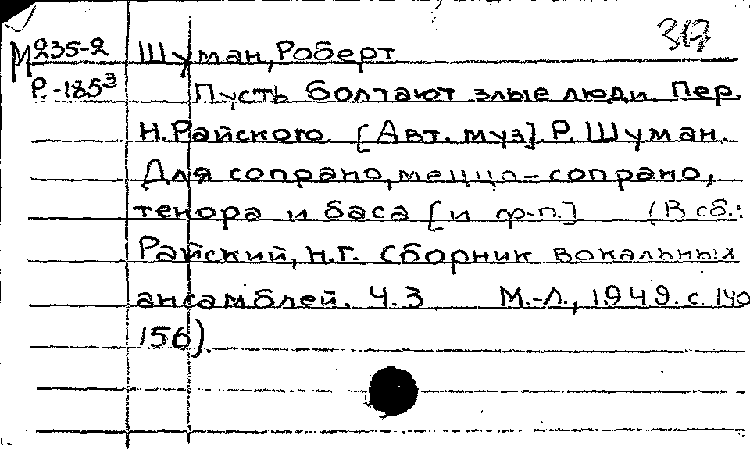 317
М 235-2 Шуман, Роберт
Р.-185³ Пусть болтают злые люди. Пер.
Н. Райского. [Авт. муз]. Р. Шуман.
Для сопрано, меццо-сопрано,
тенора и баса [и ф-п.] (В сб.:
Райский, Н.Г. Сборник вокальных
ансамблей. Ч. 3 М.-Л., 1949. с. 140
156).